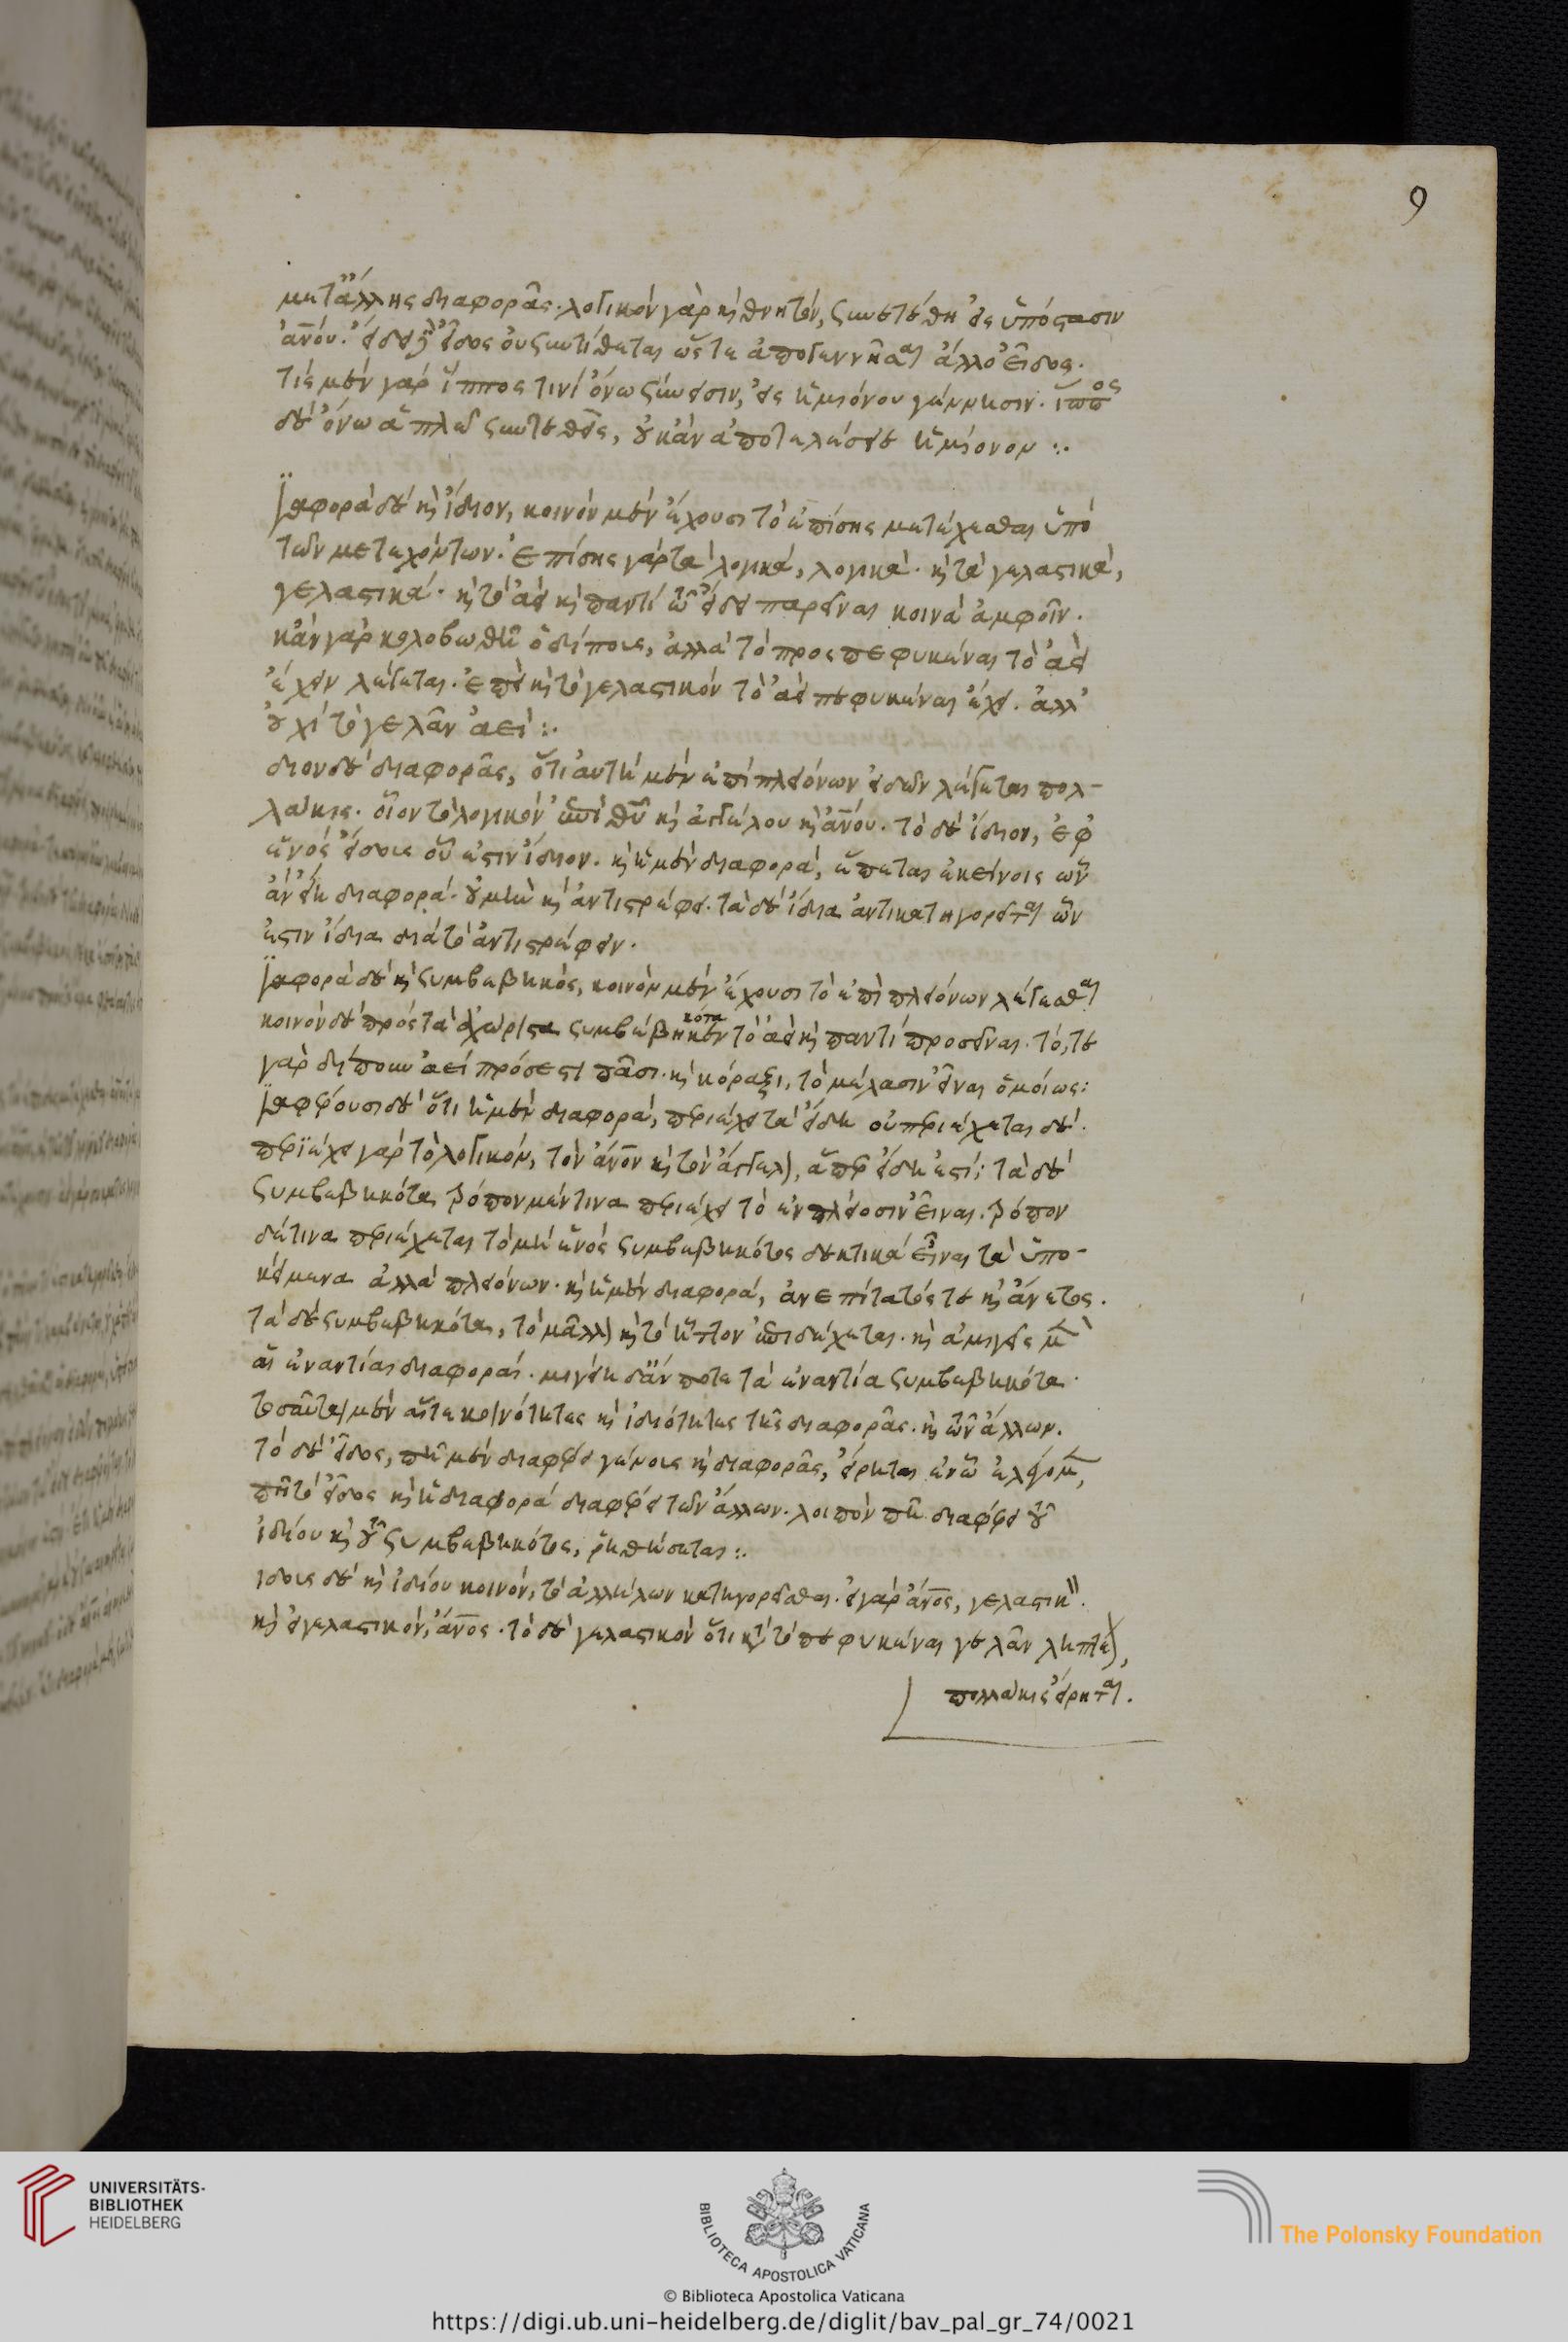 9
μετ' ἄλλης διαφορᾶς. λογικὸν γὰρ καὶ θνητόν, συνετέθη εἰς ὑπόστασιν
ἀνου. εἶδος εἴδει οὐ συντίθεται ὥστε ἀπογεννῆσαι ἄλλο εἶδος.
τὶς μὲν γὰρ ἵππος τινὶ ὄνω σύνεισιν, εἰς ἡμιόνου γέννησιν. ἵππος
δὲ ὄνω ἁπλῶς συντεθεὶς, οὐκ ἂν ἀποτελέσειε ἡμίονον :.
ιαφορὰ δὲ καὶ ἴδιον, κοινὸν μὲν ἔχουσι τὸ ἐπίσης μετέχεσθαι ὑπὸ
τῶν μετεχόντων. ἐπίσης γὰρ τὰ λογικά, λογικά. καὶ τὰ γελαστικά,
γελαστικά. καὶ τὸ ἀεὶ καὶ παντὶ τῶ εἴδει παρεῖναι κοινὰ ἀμφοῖν.
κἂν γὰρ κολοβωθῆ ὁ δίπους, ἀλλὰ τὸ πρὸς πεφυκέναι τὸ ἀεὶ
ἔχειν λέγεται. ἐπεὶ καὶ τὸ γελαστικὸν τὸ ἀεὶ πεφυκέναι ἔχει. ἀλλ'
οὐχὶ τὸ γελᾶν ἀεί :.
διον δὲ διαφορᾶς, ὅτι αὐτὴ μὲν ἐπὶ πλειόνων εἰδῶν λέγεται πολ-
λάκις. οἷον τὸ λογικὸν ἐπὶ θυ καὶ ἀγγέλου καὶ ἀνου. τὸ δὲ ἴδιον, ἐφ'
ἑνὸς εἴδους οὗ ἐστιν ἴδιον. καὶ ἡ μὲν διαφορά, ἕπεται ἐκείνοις ὧν
ἂν εἴη διαφορά. οὐ μὴν καὶ ἀντιστρέφει. τὰ δὲ ἴδια ἀντικατηγορεῖται ὧν
ἐστιν ἴδια διὰ τὸ ἀντιστρέφειν.
ιαφορὰ δὲ καὶ συμβεβηκός, κοινὸν μὲν ἔχουσι τὸ ἐπὶ πλειόνων λέγεσθαι
κοινὸν δὲ πρὸς τὰ ἀχώριστα συμβεβηκότα τὸ ἀεὶ καὶ παντὶ προσεῖναι. τό, τε
γὰρ δίπουν ἀεὶ πρόσεστι πᾶσι. καὶ κόραξι, τὸ μέλασιν εἶναι ὁμοίως:
ιαφέρουσι δὲ ὅτι ἡ μὲν διαφορά, περιέχει τὰ εἴδη οὐ περιέχεται δέ.
περιέχει γὰρ τὸ λογικόν, τὸν ἄνον καὶ τὸν ἄγγελον, ἅπερ εἴδη ἐστί; τὰ δὲ
συμβεβηκότα τρόπον μέν τινα περιέχει τὸ ἐν πλείοσιν εἶναι. τρόπον
δέ τινα περιέχεται τὸ μὴ ἑνὸς συμβεβηκότος δεκτικὰ εἶναι τὰ ὑπο-
κείμενα ἀλλὰ πλειόνων. καὶ ἡ μὲν διαφορά, ἀνεπίτατός τε καὶ ἄνετος.
τὰ δὲ συμβεβηκότα, τὸ μᾶλλον καὶ τὸ ἧττον ἐπιδέχεται. καὶ ἀμιγεῖς μὲν
αἱ ἐναντίαι διαφοραί. μιγείη δ' ἄν ποτε τὰ ἐναντία συμβεβηκότα.
τοσαῦται μὲν αἵτε κοινότητες καὶ ἰδιότητες τῆς διαφορᾶς. καὶ τῶν ἄλλων.
τὸ δὲ εἶδος, πῆ μὲν διαφέρει γένους καὶ διαφορᾶς, εἴρηται ἐν ὧ ἐλέγομεν,
πῆ τὸ εἶδος καὶ ἡ διαφορὰ διαφέρει τῶν ἄλλων. λοιπὸν πῆ διαφέρει τοῦ
ἰδίου καὶ τοῦ συμβεβηκότος, ῥηθήσεται :.
ιδους δὲ καὶ ἰδίου κοινόν, τὸ ἀλλήλων κατηγορεῖσθαι. εἰ γὰρ ἄνος, γελαστικόν.
καὶ εἰ γελαστικόν, ἄνος. τὸ δὲ γελαστικὸν ὅτι κατὰ τὸ πεφυκέναι γελᾶν ληπτέον,
πολλάκις εἴρηται.
UNIVERSITÄTS-
BIBLIOTHEK
HEIDELBERG
BIBLIOTECA APOSTOLICA VATICANA
The Polonsky Foundation
© Biblioteca Apostolica Vaticana
https://digi.ub.uni-heidelberg.de/diglit/bav_pal_gr_74/0021